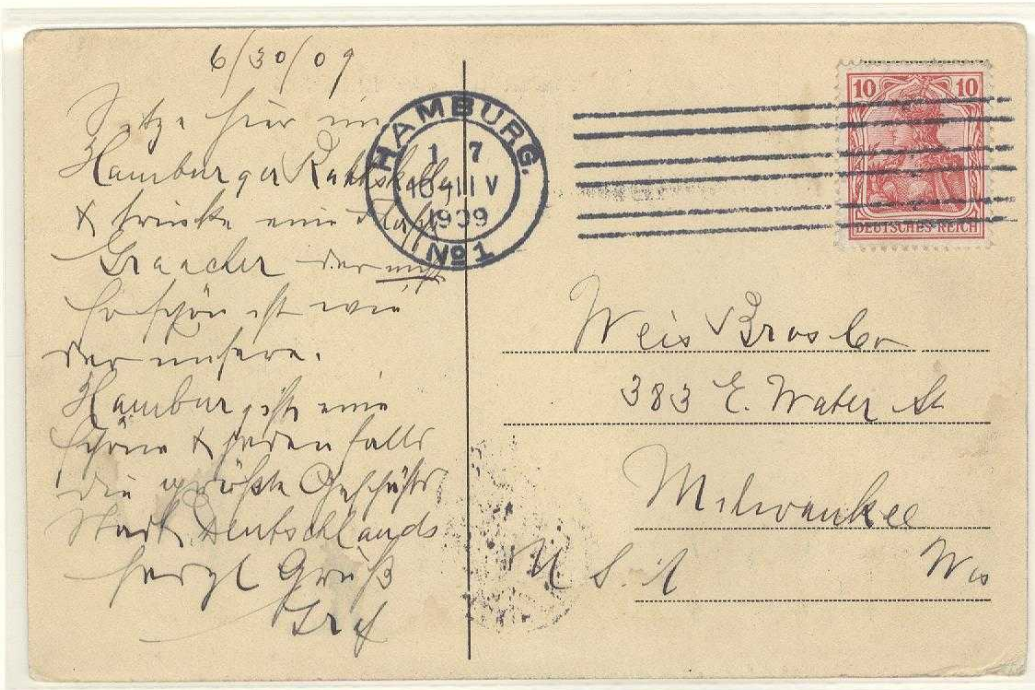 6/30/09
Sitze hier im
Hamburger Rathskeller
& trinke eine Flasche
Graacher der nicht
so schön ist wie
der unsere.
Hamburg ist eine
schöne & jedenfalls
die größte Geschäfts
Stadt Deutschlands
herzl Gruß
HAMBURG.
1 7
1909
No 1
10 10
DEUTSCHES REICH
Weis Bros Co
383 E. Water St
Milwaukee
U S A Wis